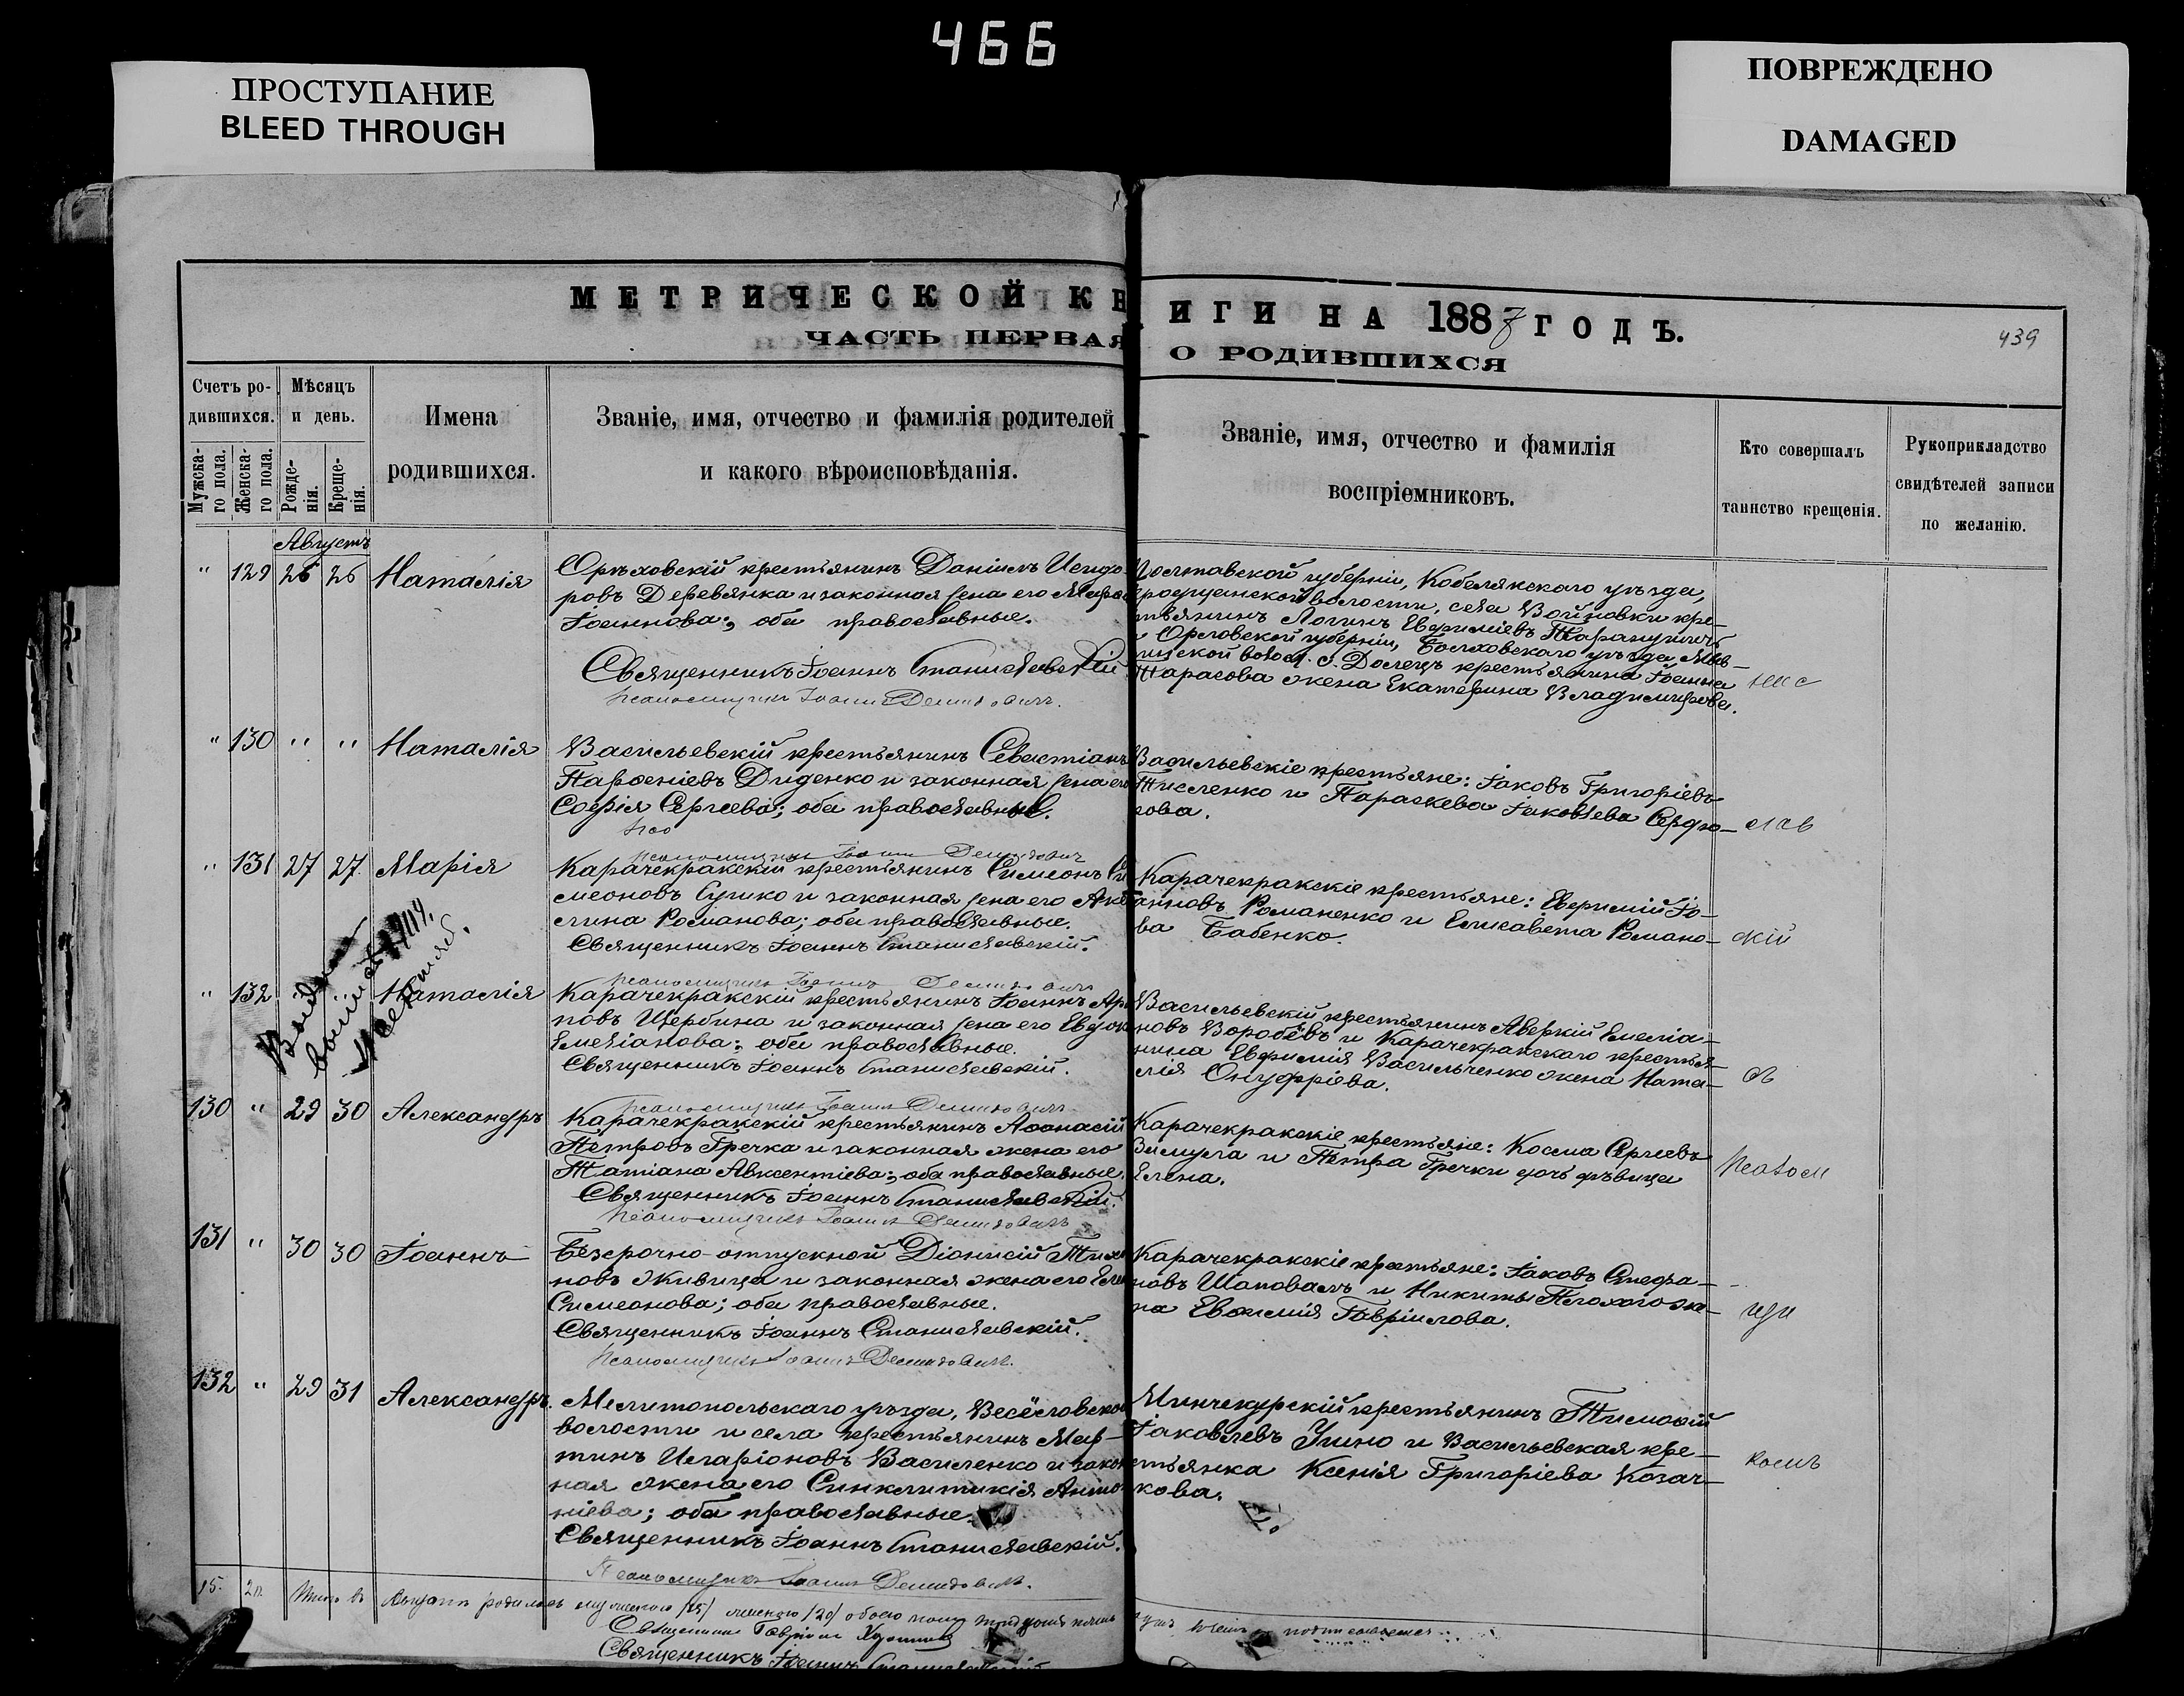 466
ПРОСТУПАНИЕ
BLEED THROUGH
ПОВРЕЖДЕНО
DAMAGED
МЕТРИЧЕСКОЙ КН
ИГИ НА 1887 ГОДЪ.
439
ЧАСТЬ ПЕРВАЯ
О РОДИВШИХСЯ
Счетъ ро-
дившихся.
Мужска-
го пола.
Женска-
го пола.
Мѣсяцъ
и день.
Рожде-
нія.
Креще-
нія.
Имена
родившихся.
Званіе, имя, отчество и фамилія родителей
и какого вѣроисповѣданія.
Званіе, имя, отчество и фамилія
воспріемниковъ.
Кто совершалъ
таинство крещенія.
Рукоприкладство
свидѣтелей записи
по желанію.
Августъ
" 129 26 26 Наталія
Орѣховскій крестьянинъ Даніилъ Исидо-
ровъ Деревянка и законная жена его Мар
Іоаннова; оба православные.
Священникъ Іоаннъ Станиславскій
Псаломщикъ Іоаннъ Демидовичъ.
Полтавской губерніи, Кобелякскаго уѣзда,
волости, села Войновки кре-
стьянинъ Логинъ Евфиміевъ
и Орловской губерніи, Болховскаго уѣзда,
волост. с. Долецъ крестьянина Іоанна
Тарасова жена Екатерина Владимирова.
" 130 " " Наталія
Васильевскій крестьянинъ Севастіанъ
Парѳеніевъ Диденко и законная жена его
Софія Сергеева; оба православные.
Псаломщикъ Іоаннъ Демидовичъ
Васильевскіе крестьяне: Іаковъ Григоріевъ
Писленко и Параскева Іаковлева Сердю-
кова.
" 131 27 27. Марія
Карачекракскій крестьянинъ Симеонъ Си
меоновъ Сушко и законная жена его Аке
лина Романова; оба православные.
Священникъ Іоаннъ Станиславскій.
Псаломщикъ Іоаннъ Демидовичъ
Карачекракскіе крестьяне: Евфимій Іо-
анновъ Романенко и Елисавета Романо-
ва Бабенко.
скій
" 132 " " Наталія
Карачекракскій крестьянинъ Іоаннъ Ар
повъ Щербина и законная жена его Евдок
Емеліанова; оба православные.
Священникъ Іоаннъ Станиславскій.
Псаломщикъ Іоаннъ Демидовичъ
Васильевскій крестьянинъ Аверкій Емеліа-
новъ Воробёвъ и Карачекракскаго крестья-
нина Евфимія Васильченко жена Ната-
лія Онуфріева.
130 " 29 30 Александръ
Карачекракскій крестьянинъ Аѳонасій
Петровъ Гречка и законная жена его
Татіана Авксентіева; оба православные.
Священникъ Іоаннъ Станиславскій.
Псаломщикъ Іоаннъ Демидовичъ
Карачекракскіе крестьяне: Косма Сергеевъ
и Петра Гречки дочь дѣвица
Елена.
Псалом
131 " 30 30 Іоаннъ
Безсрочно-отпускной Діонисій Тих
новъ Живица и законная жена его Еле
Симеонова; оба православные.
Священникъ Іоаннъ Станиславскій.
Псаломщикъ Іоаннъ Демидовичъ.
Карачекракскіе крестьяне: Іаковъ Стефа-
новъ Шаповалъ и Никиты Плохого же-
на Евѳимія Гавріилова.
щи
132 " 29 31 Александръ.
Мелитопольскаго уѣзда, Весёловской
волости и села крестьянинъ Мар-
тинъ Иларіоновъ Василенко и закон
ная жена его Синклитикія Анто
ніева; оба православные.
Священникъ Іоаннъ Станиславскій.
Псаломщикъ Іоаннъ Демидовичъ.
Тимоѳій
Іаковлевъ и Васильевская кре-
стьянка Ксенія Григоріева Козач-
кова.
комъ
15. 20.
Итого въ Августѣ родилось мужескаго /15/ женскаго /20/ обоего пола тридцать пять
Священникъ Гавріилъ
Священникъ Іоаннъ Станиславскій